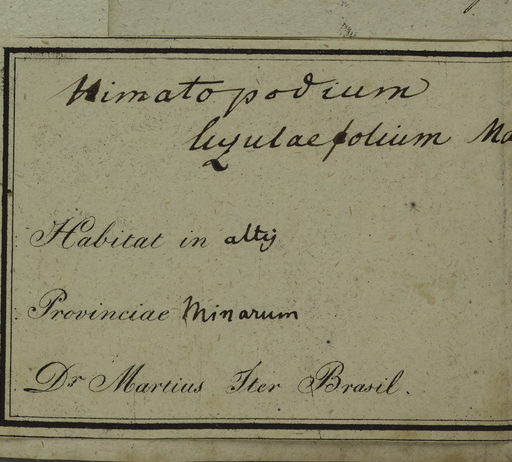 Himatopodium
ligulaefolium Ma
Habitat in altij
Provinciae Minarum
Dr Martius Iter Brasil.